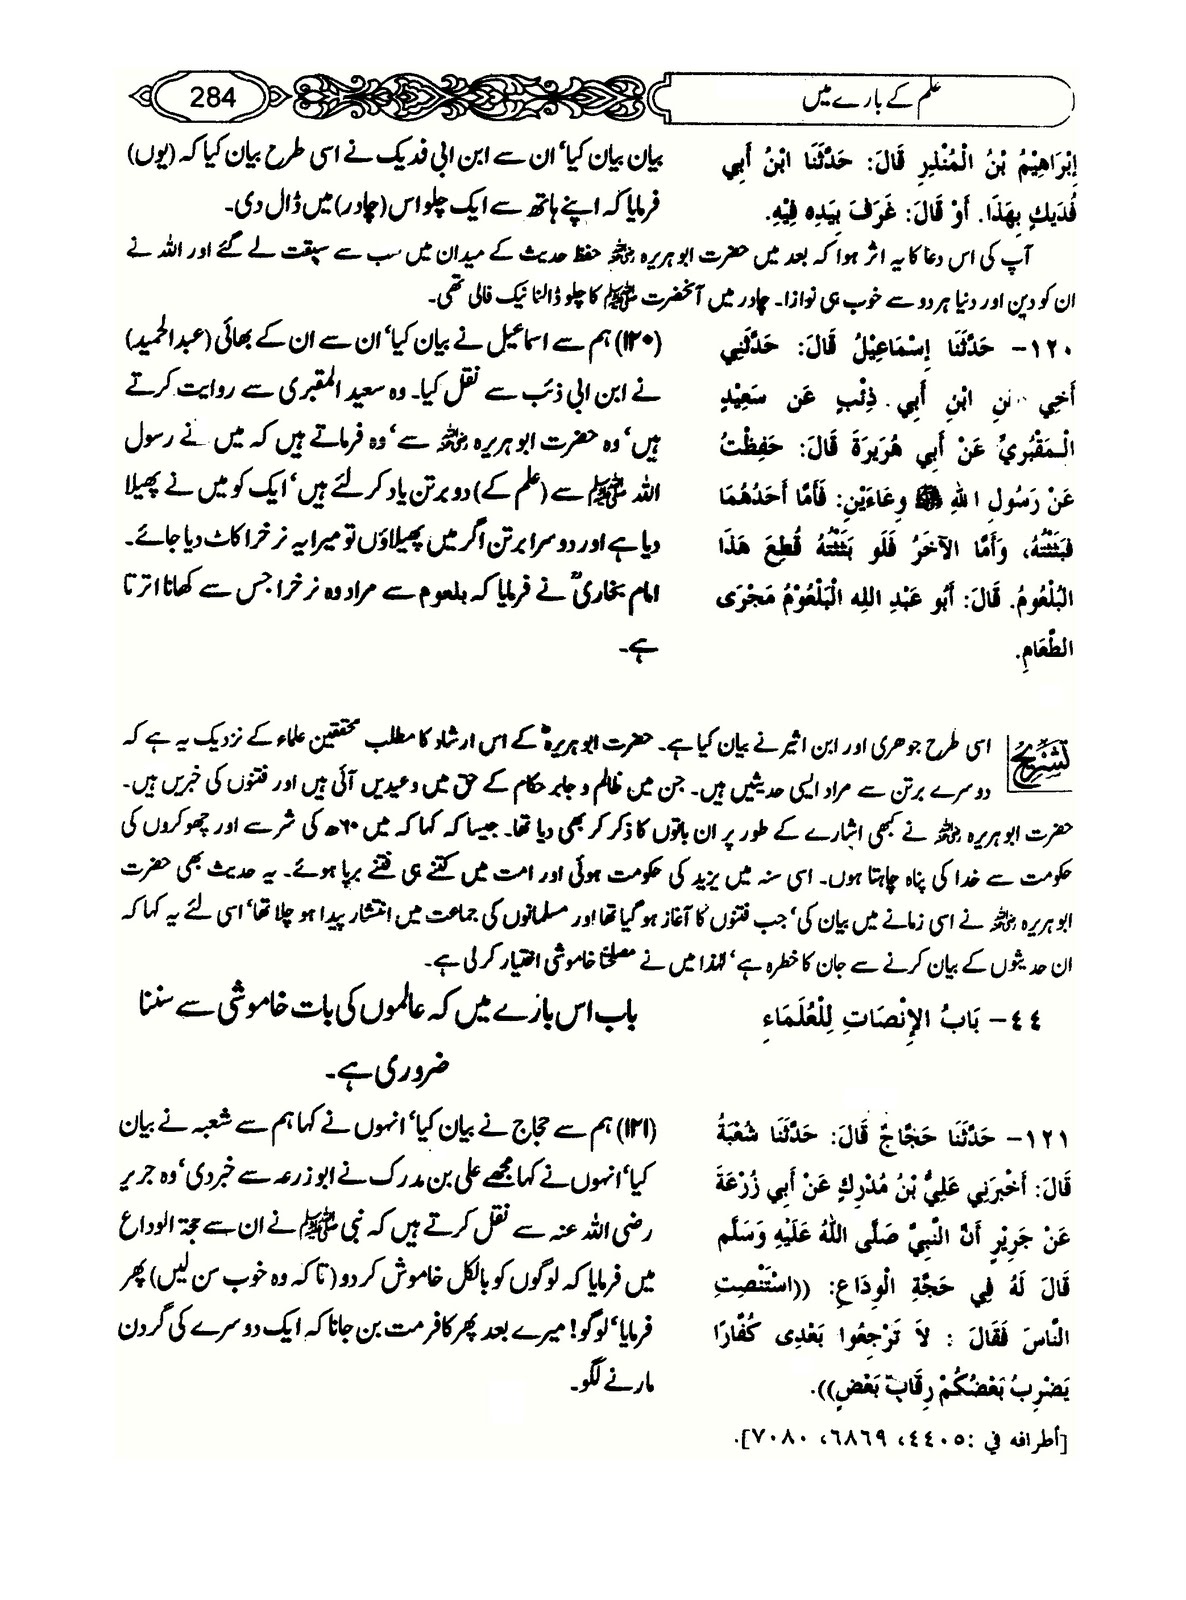 علم کے بارے میں
284
إِبْرَاهِيْمُ بْنُ الْمُنْذِرِ قَالَ: حَدَّثَنَا ابْنُ أَبِي
فُدَيكٍ بِهَذَا. أَوْ قَالَ: غَرَفَ بِيَدِهِ فِيْهِ.
بیان بیان کیا، ان سے ابن ابی فدیک نے اسی طرح بیان کیا کہ (یوں)
فرمایا کہ اپنے ہاتھ سے ایک چلو اس (چادر) میں ڈال دی۔
آپ کی اس دعا کا یہ اثر ہوا کہ بعد میں حضرت ابو ہریرہ رضی اللہ عنہ حفظ حدیث کے میدان میں سب سے سبقت لے گئے اور اللہ نے
ان کو دین اور دنیا ہر دو سے خوب ہی نوازا۔ چادر میں آنحضرت ﷺ کا چلو ڈالنا نیک فالی تھی۔
١٢٠- حَدَّثَنَا إِسْمَاعِيْلُ قَالَ: حَدَّثَنِي
أَخِي عَنِ ابْنِ أَبِي ذِئْبٍ عَن سَعِيْدٍ
الْـمَقْبُرِيِّ عَنْ أَبِي هُرَيرَةَ قَالَ: حَفِظْتُ
عَنْ رَسُولِ اللهِ ﷺ وِعَاءَيْنِ: فَأَمَّا أَحَدُهُمَا
فَبَثَثْتُهُ، وَأَمَّا الآخَرُ فَلَو بَثَثْتُهُ قُطِعَ هَذَا
البُلْعُومُ. قَالَ: أَبُو عَبْدِ اللهِ الْبَلْعُوْمُ مَجْرَى
الطَّعَامِ.
(۱۲۰) ہم سے اسماعیل نے بیان کیا، ان سے ان کے بھائی (عبدالحمید)
نے ابن ابی ذئب سے نقل کیا۔ وہ سعید المقبری سے روایت کرتے
ہیں، وہ حضرت ابو ہریرہ رضی اللہ عنہ سے، وہ فرماتے ہیں کہ میں نے رسول
اللہ ﷺ سے (علم کے) دو برتن یاد کر لئے ہیں، ایک کو میں نے پھیلا
دیا ہے اور دوسرا برتن اگر میں پھیلاؤں تو میرا یہ نرخرا کاٹ دیا جائے۔
امام بخاریؒ نے فرمایا کہ بلعوم سے مراد وہ نرخرا جس سے کھانا اترتا
ہے۔
تشریح
اسی طرح جوہری اور ابن اثیر نے بیان کیا ہے۔ حضرت ابو ہریرہؓ کے اس ارشاد کا مطلب محققین علماء کے نزدیک یہ ہے کہ
دوسرے برتن سے مراد ایسی حدیثیں ہیں۔ جن میں ظالم و جابر حکام کے حق میں وعیدیں آئی ہیں اور فتنوں کی خبریں ہیں۔
حضرت ابو ہریرہ رضی اللہ عنہ نے کبھی اشارے کے طور پر ان باتوں کا ذکر کر بھی دیا تھا۔ جیسا کہ کہا کہ میں ۶۰ھ کی شر سے اور چھوکروں کی
حکومت سے خدا کی پناہ چاہتا ہوں۔ اسی سنہ میں یزید کی حکومت ہوئی اور امت میں کتنے ہی فتنے برپا ہوئے۔ یہ حدیث بھی حضرت
ابو ہریرہ رضی اللہ عنہ نے اسی زمانے میں بیان کی، جب فتنوں کا آغاز ہو گیا تھا اور مسلمانوں کی جماعت میں انتشار پیدا ہو چلا تھا، اسی لئے یہ کہا کہ
ان حدیثوں کے بیان کرنے سے جان کا خطرہ ہے، لہٰذا میں نے مصلحتاً خاموشی اختیار کر لی ہے۔
٤٤- بَابُ الإِنْصَاتِ لِلْعُلَمَاءِ
باب اس بارے میں کہ عالموں کی بات خاموشی سے سننا
ضروری ہے۔
١٢١- حَدَّثَنَا حَجَّاجٌ قَالَ: حَدَّثَنَا شُعْبَةُ
قَالَ: أَخْبَرَنِي عَلِيُّ بْنُ مُدْرِكٍ عَنْ أَبِي زُرْعَةَ
عَنْ جَرِيْرٍ أَنَّ النَّبِيَّ صَلَّى اللهُ عَلَيْهِ وَسَلَّمَ
قَالَ لَهُ فِي حَجَّةِ الْوِدَاعِ: ((اسْتَنْصِتِ
النَّاسَ فَقَالَ : لاَ تَرْجِعُوا بَعْدِى كُفَّارًا
يَضْرِبُ بَعْضُكُمْ رِقَابَ بَعْضٍ)).
[أطرافه في :٤٤٠٥، ٦٨٦٩، ٧٠٨٠].
(۱۲۱) ہم سے حجاج نے بیان کیا، انہوں نے کہا ہم سے شعبہ نے بیان
کیا، انہوں نے کہا مجھے علی بن مدرک نے ابو زرعہ سے خبر دی، وہ جریر
رضی اللہ عنہ سے نقل کرتے ہیں کہ نبی ﷺ نے ان سے حجۃ الوداع
میں فرمایا کہ لوگوں کو بالکل خاموش کر دو (تاکہ وہ خوب سن لیں) پھر
فرمایا، لوگو! میرے بعد پھر کافر مت بن جانا کہ ایک دوسرے کی گردن
مارنے لگو۔